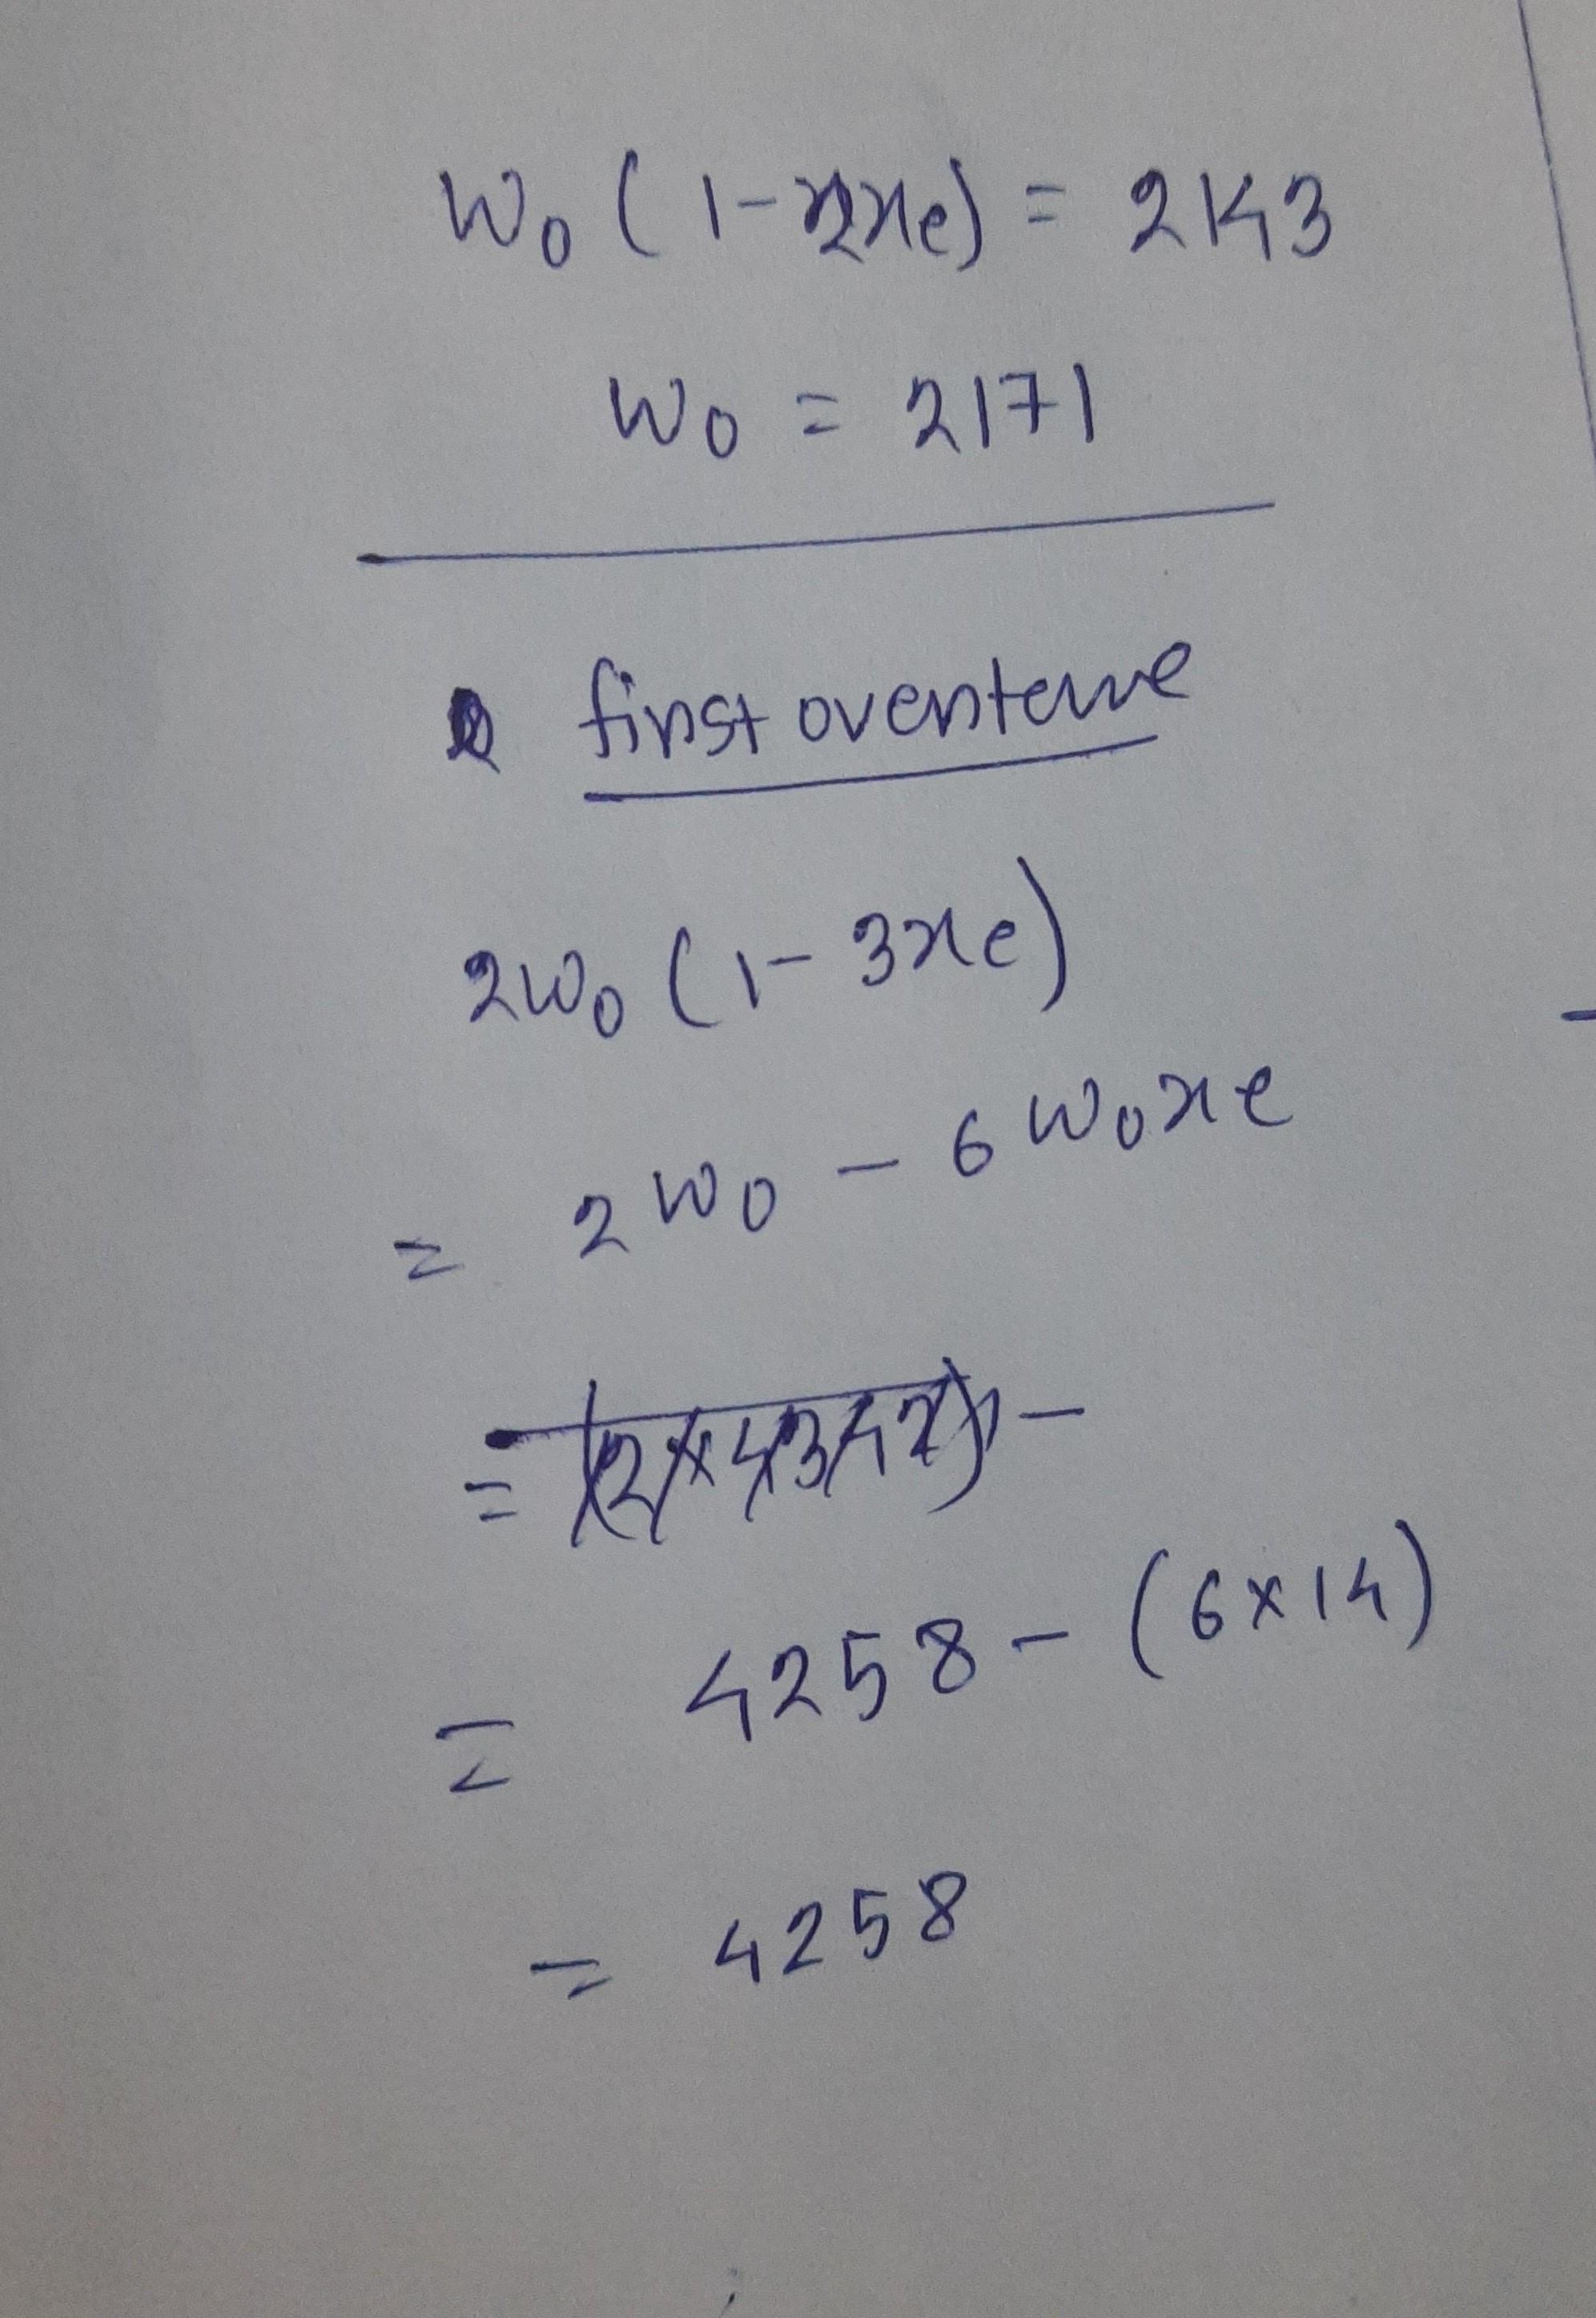 W₀ (1-2xe) = 2143
W₀ = 2171
first overtone
2W₀ (1-3xe)
= 2W₀ - 6W₀xe
= (2×4342) -
= 4258 - (6×14)
= 4258